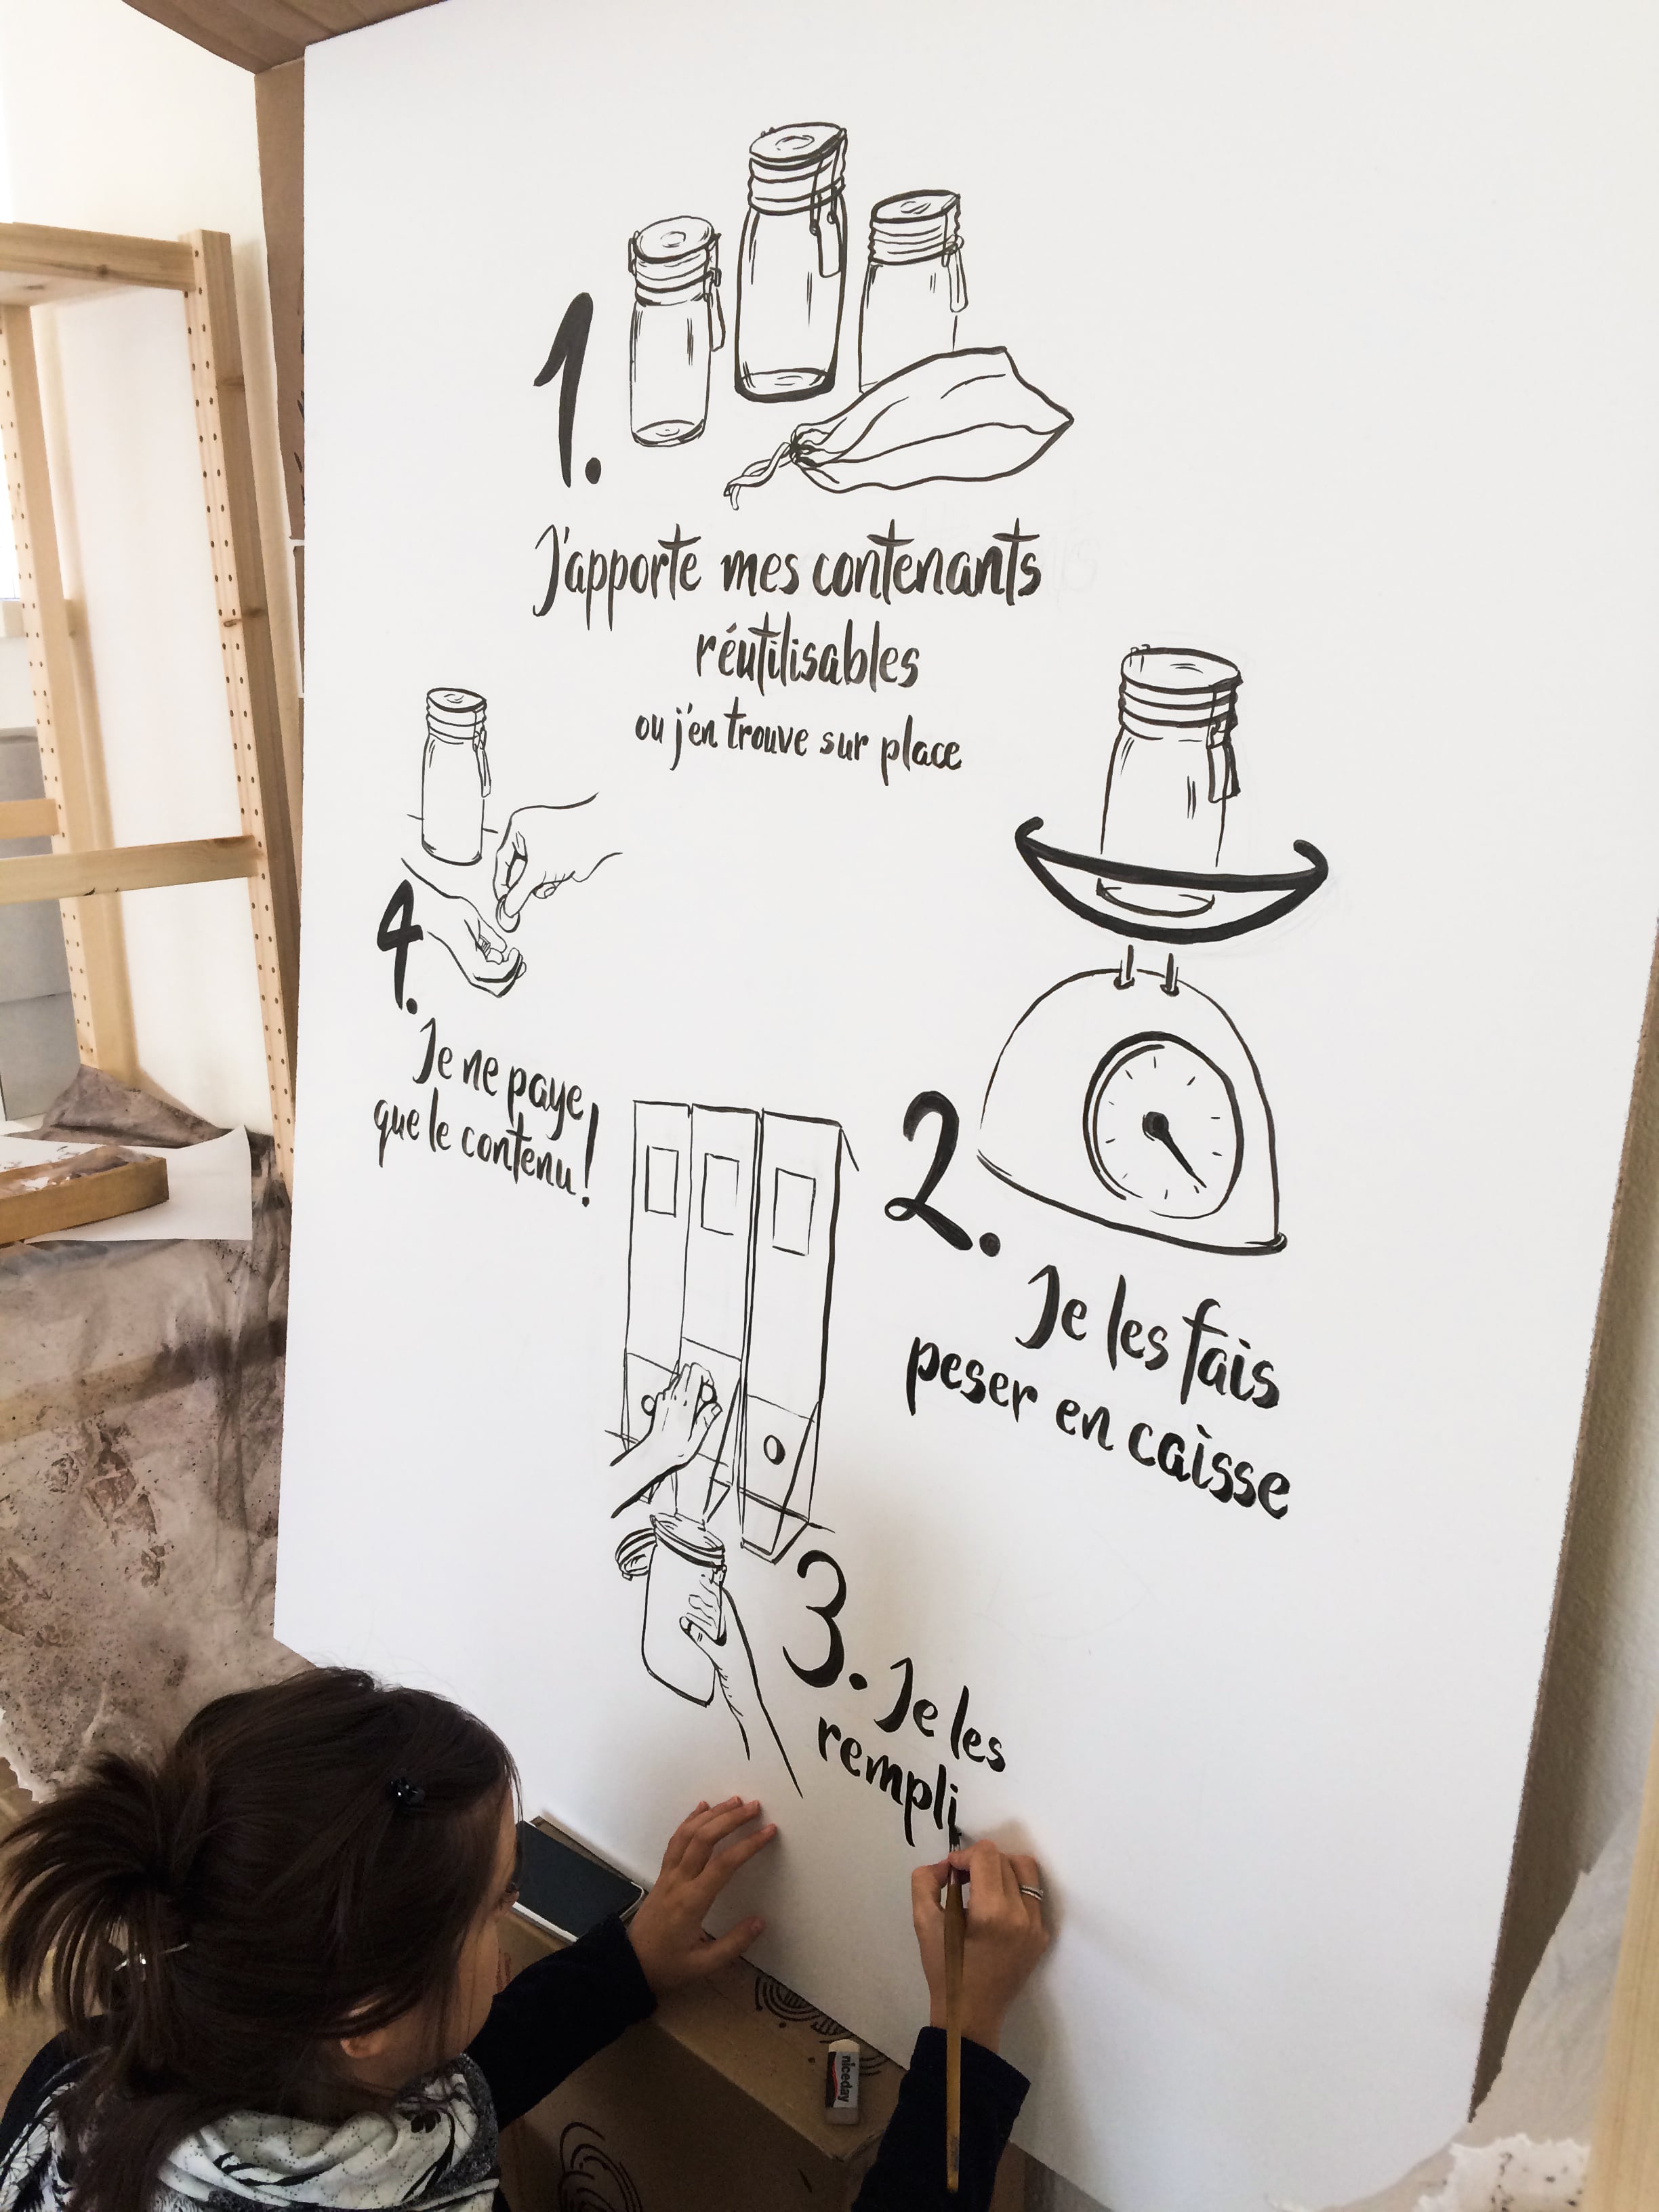 1.
J'apporte mes contenants
réutilisables
ou j'en trouve sur place
2.
Je les fais
peser en caisse
3. Je les
rempli
4.
Je ne paye
que le contenu!
niceday